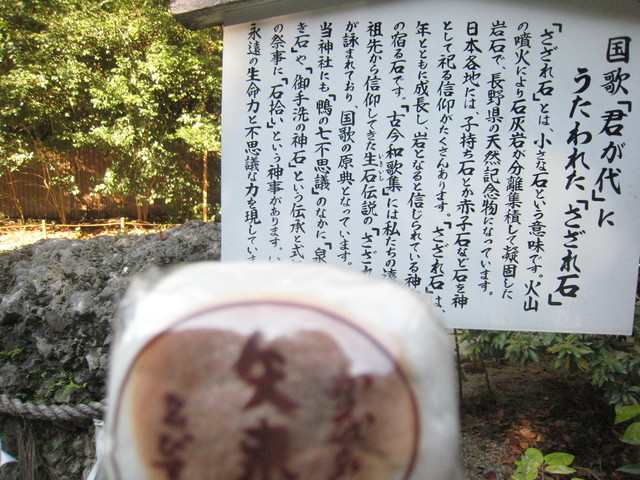 国歌「君が代」に
うたわれた「さざれ石」
「さざれ石」とは、小さな石という意味です。火山
の噴火により石灰岩が分離集積して凝固した
岩石で、長野県の天然記念物となっています。
日本各地には子持ち石とか赤子石など石を神
として祀る信仰がたくさんあります。「さざれ石」は、
年とともに成長し、岩となると信じられている神
の宿る石です。「古今和歌集」には私たちの遠
祖先から信仰してきた生石伝説の「さざれ
が詠まれており、国歌の原典となっています。
当神社にも「鴨の七不思議」のなかに、「泉
き石」や、「御手洗の神石」という伝承と式
の祭事に、「石拾い」という神事があります。い
永遠の生命力と不思議な力を現してい